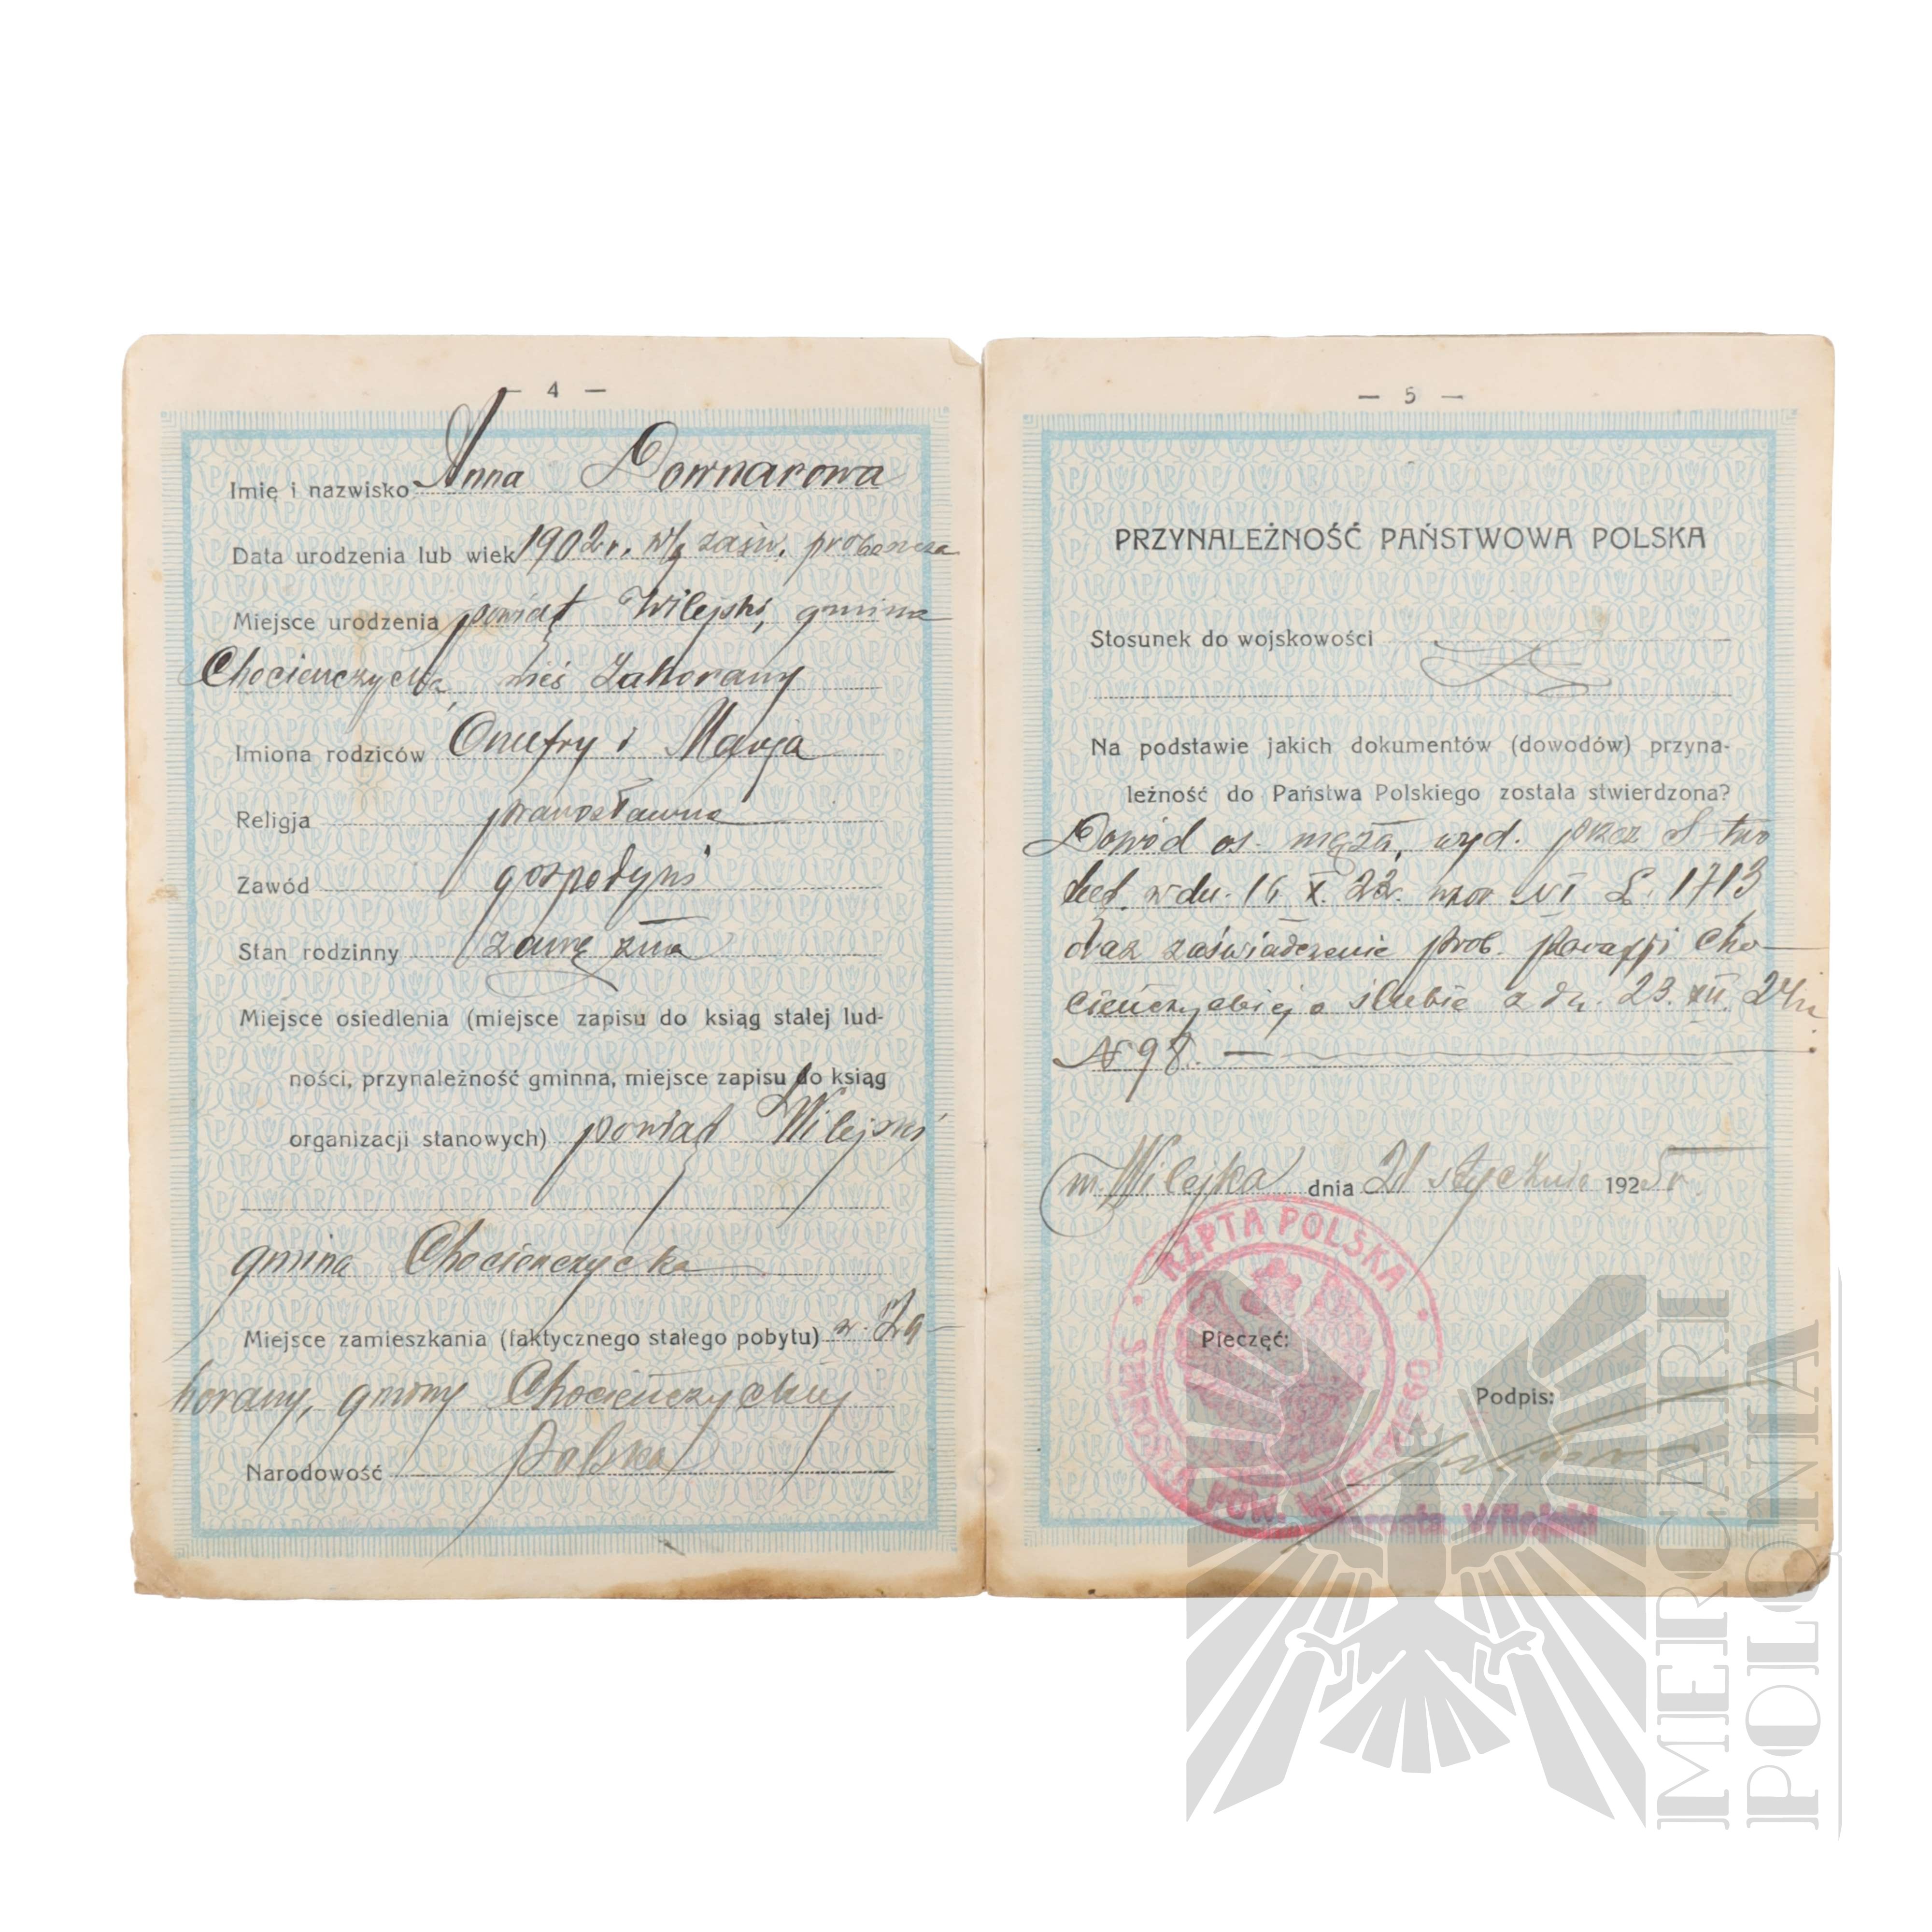 — 4 —
Imię i nazwisko Anna Downarowa
Data urodzenia lub wiek 1902 r. w/g zaśw. proboszcza
Miejsce urodzenia powiat Wilejski, gmina
Chocieńczycka, wieś Zahorany
Imiona rodziców Onufry i Marja
Religja prawosławna
Zawód gospodyni
Stan rodzinny zamężna
Miejsce osiedlenia (miejsce zapisu do ksiąg stałej lud-
ności, przynależność gminna, miejsce zapisu do ksiąg
organizacji stanowych) powiat Wilejski
gmina Chocieńczycka
Miejsce zamieszkania (faktycznego stałego pobytu) w. Za-
horany, gminy Chocieńczyckiej
Narodowość Polska
— 5 —
PRZYNALEŻNOŚĆ PAŃSTWOWA POLSKA
Stosunek do wojskowości
Na podstawie jakich dokumentów (dowodów) przyna-
leżność do Państwa Polskiego została stwierdzona?
Dowód os. męża, wyd. przez S-two
w dn. 16 X. 22r. wzor VI L. 1713
oraz zaświadczenie prob. parafji Cho-
cieńczyckiej o ślubie z dn. 23. XII. 24 r.
N 98. —
m. Wilejka dnia 21 stycznia 1925 r.
RZPTA POLSKA
STAROSTA POW. WILEJSKIEGO
Pieczęć:
Podpis:
Starosta Wilejski
MERCARI
POLONIA